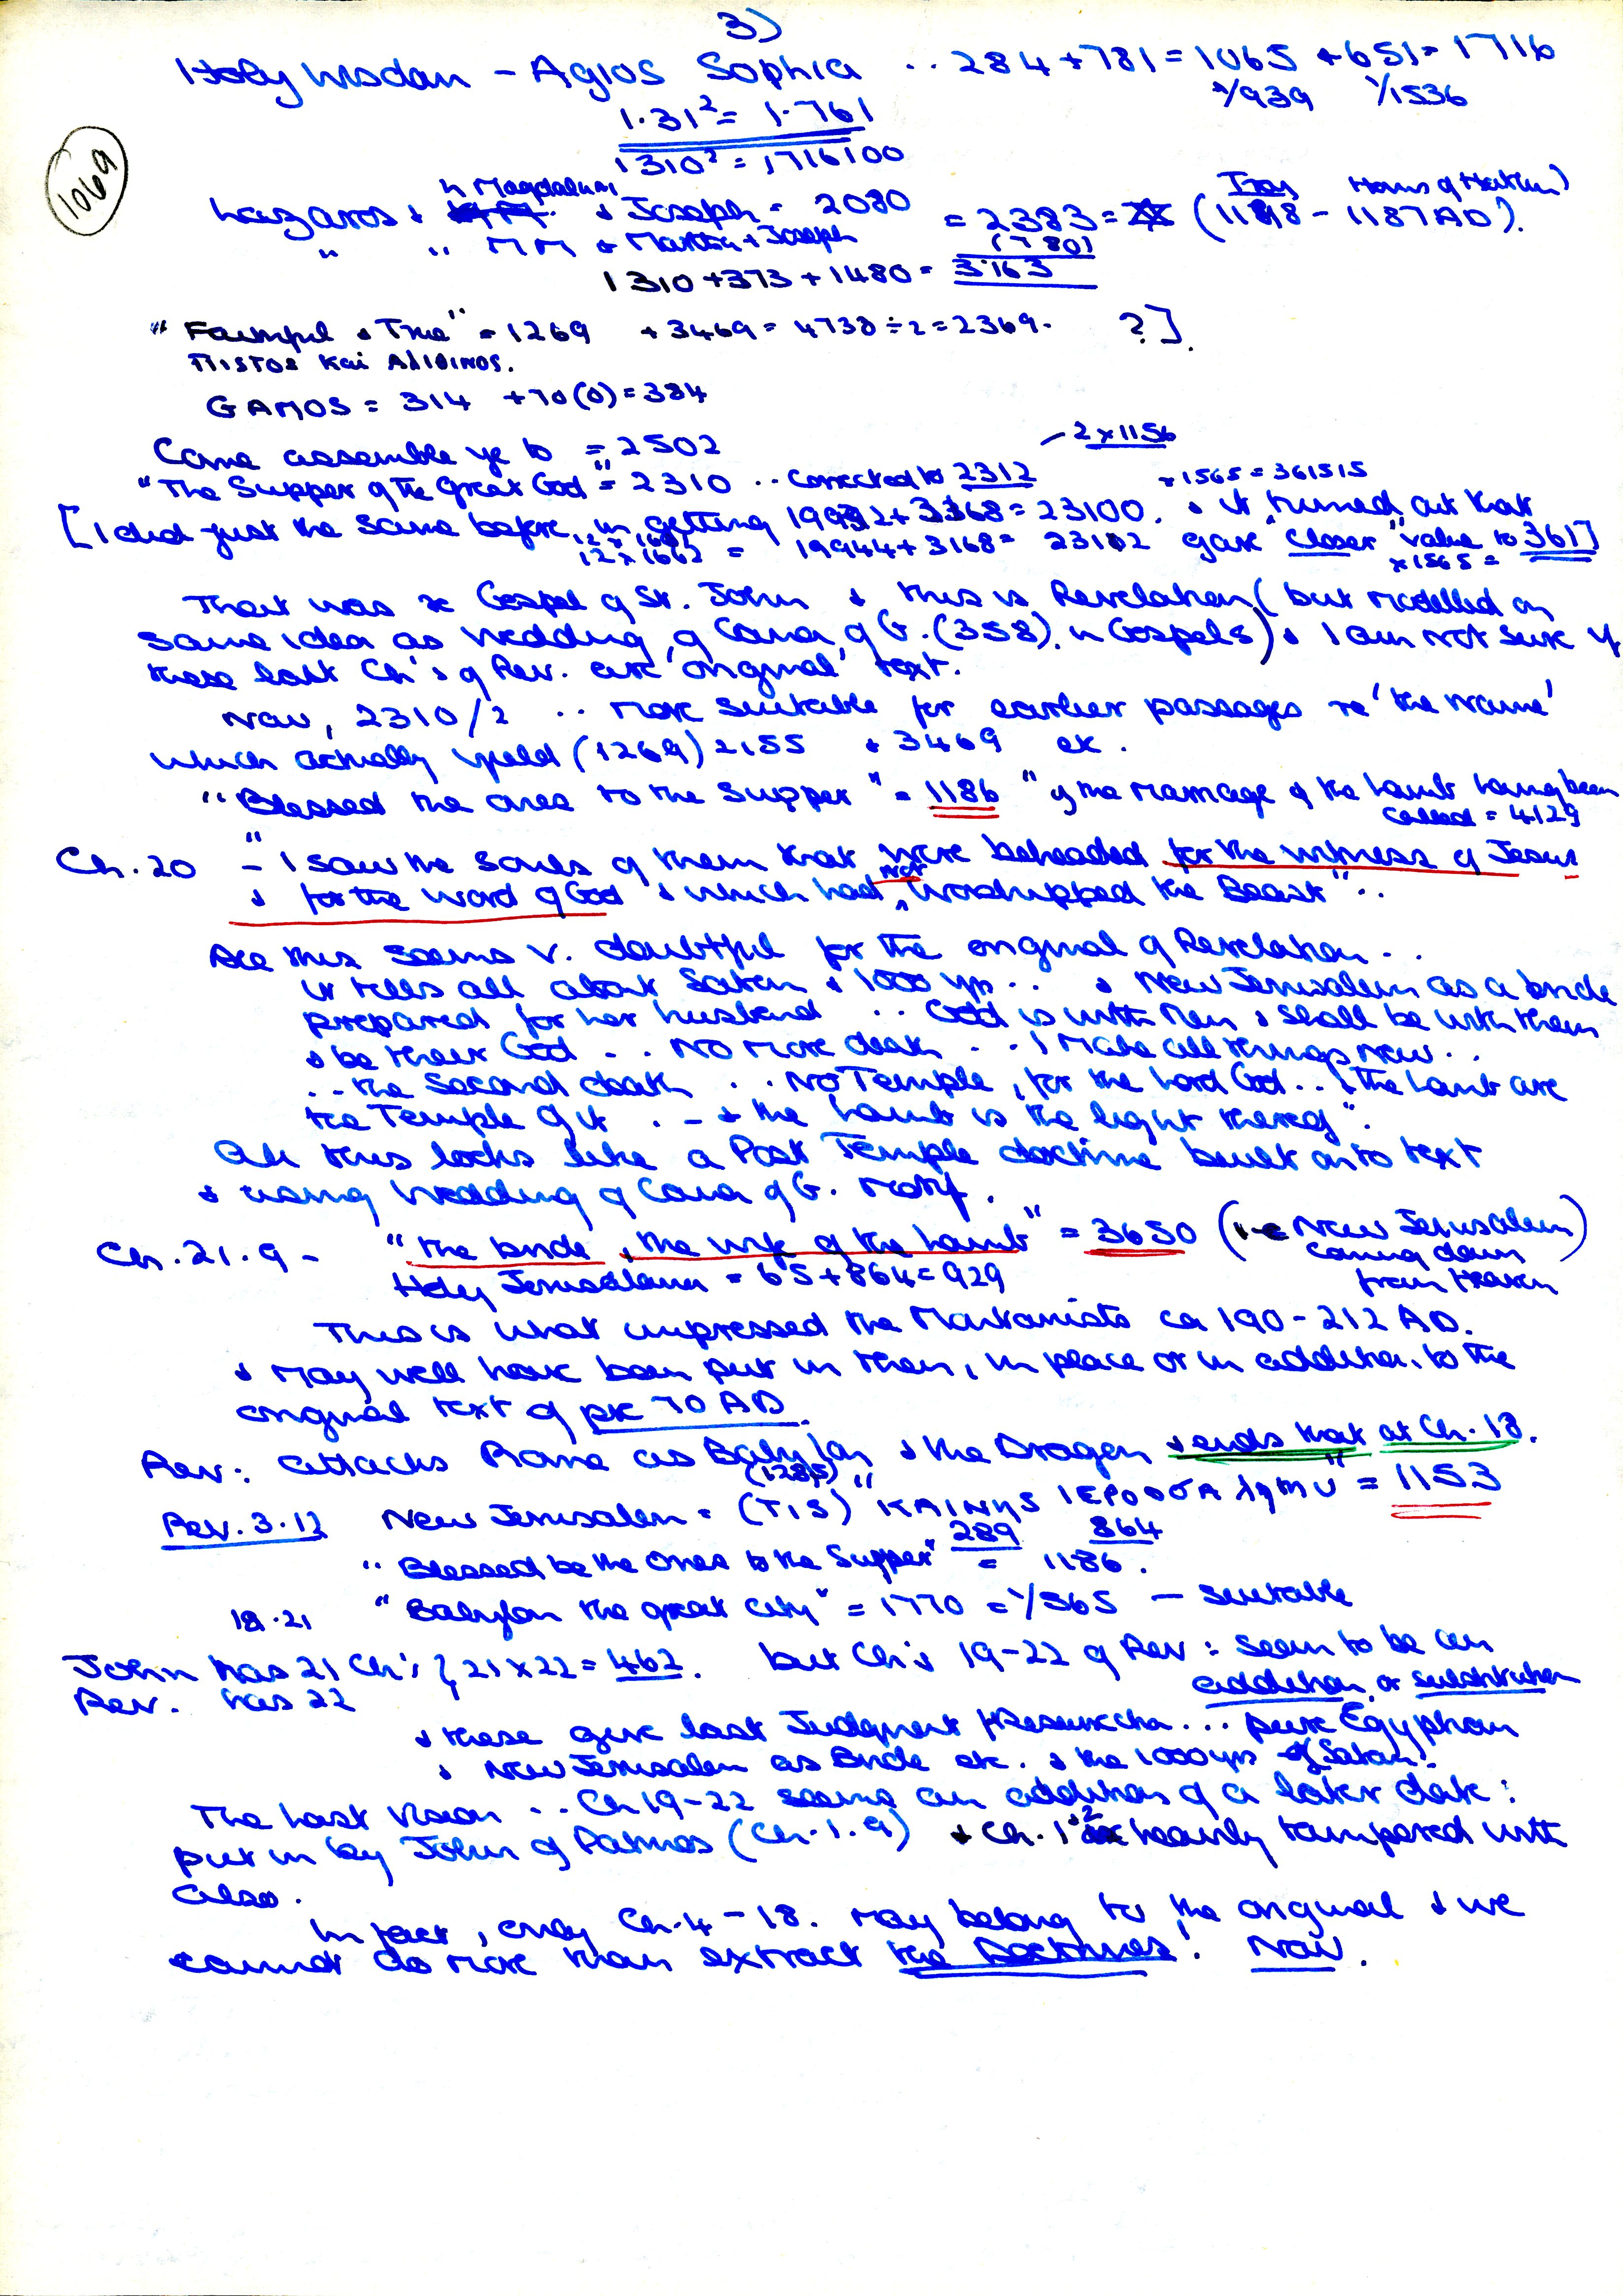 3)
Holy Wisdom - Agios Sophia .. 284 + 781 = 1065 + 651 = 1716
1/939 1/1536
1.31² = 1.761
1310² = 1716100
1069
h Magdaluni
Lazaros + + Joseph = 2080 = 2383 = (1198 - 1187 AD).
Horns of Hattin)
" .. MM + Martha + Joseph (780)
1310 + 373 + 1480 = 3163
"Faithful + True" = 1269 + 3469 = 4738 ÷ 2 = 2369. ?].
ΠISTOS Kai AliΘINOS.
GAMOS = 314 + 70(0) = 384
Come assemble ye to = 2502
- 2 x 1156
"The Supper of the Great God" = 2310 .. corrected to 2312
÷ 1565 = 361515
[I did just the same before, in getting 19932 + 3168 = 23100. + it turned out that
12 x 1661
12 x 1662 = 19944 + 3168 = 23112 gave closer "value to 361]
x 1565 =
That was Gospel of St. John + this is Revelation (but modelled on
same idea as Wedding of Cana of G. (358) in Gospels) + I am not sure if
these last Ch's of Rev. are 'original' text.
Now, 2310/2 .. more suitable for earlier passages re 'the Name'
which actually yield (1269) 2155 + 3469 etc.
"Blessed the ones to the Supper" = 1186 "of the Marriage of the Lamb having been
called = 4129
Ch. 20 - "I saw the souls of them that were beheaded for the witness of Jesus
+ for the word of God + which had not worshipped the Beast"..
All this seems v. doubtful for the original of Revelation..
it tells all about Satan + 1000 yrs .. + New Jerusalem as a bride
prepared for her husband .. God is with Men + shall be with them
+ be their God .. No more death .. I make all things new..
.. the second death .. No Temple, for the Lord God .. + the Lamb are
the Temple of it . - + the Lamb is the light thereof".
All this looks like a Post Temple doctrine built onto text
+ using Wedding of Cana of G. motif.
Ch. 21.9 - "the bride, the wife of the Lamb" = 3650 (i.e New Jerusalem)
coming down
from Heaven
Holy Jerusalem = 65 + 864 = 929
This is what impressed the Montanists ca 190 - 212 AD.
+ may well have been put in then, in place or in addition to the
original text of pre 70 AD.
Rev: attacks Rome as Babylon + the Dragon + ends that at Ch. 18.
(1285)
Rev. 3.12 New Jerusalem = (TIS) "KAINYS IEPOUSAλημυ" = 1153
289 864
"Blessed be the ones to the Supper" = 1186.
18.21 "Babylon the great city" = 1770 = 1/565 - suitable
John has 21 Ch's } 21 x 22 = 462. but Ch's 19-22 of Rev: seem to be an
Rev. has 22 addition or substitution
+ these give last Judgment + Resurrection ... pure Egyptian
+ New Jerusalem as Bride etc. + the 1000 yrs of Satan.
The last Vision .. Ch 19-22 seems an addition of a later date:
put in by John of Patmos (Ch. 1.9) + Ch. 1 heavily tampered with
also.
In fact, only Ch. 4 - 18. may belong to the original + we
cannot do more than extract the Doctrines! Now.